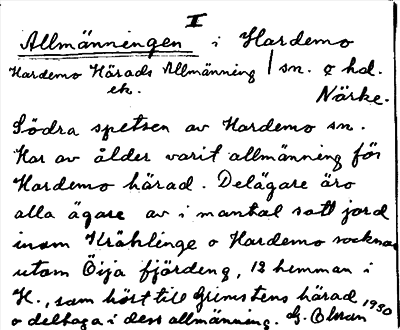 I
Allmänningen i Hardemo
Hardemo Härads Allmänning / sn. o hd.
ek. Närke.
Södra spetsen av Hardemo sn.
Har av ålder varit allmänning för
Hardemo härad. Delägare äro
alla ägare av i mantal satt jord
inom Kräklinge o Hardemo socknar
utom Öija fjärdeng, 12 hemman i
H., som hört till Grimstens härad
o deltaga i dess allmänning. G. Olsson 1930